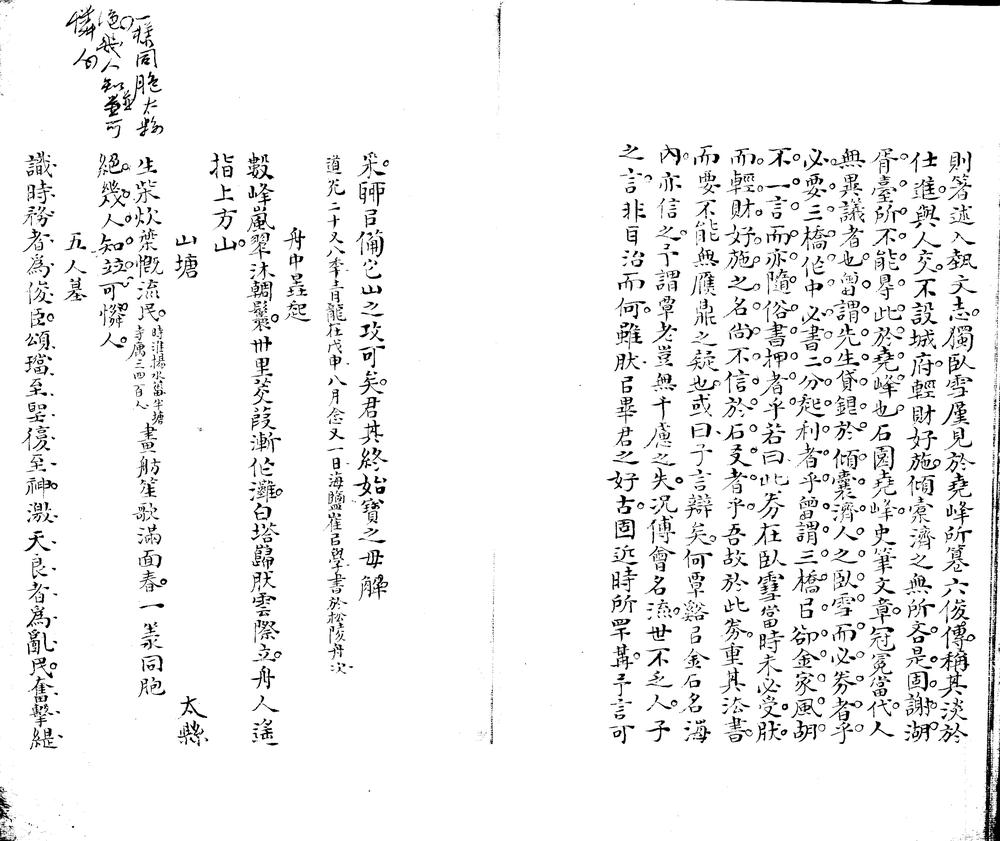 則箸述入埶文志獨臥雪厪見於堯峰所篹六俊傳稱其淡於
仕進與人交不設城府輕財好施傾橐濟之無所吝是固謝湖
胥臺所不能㝵此於堯峰也石園堯峰史筆文章冠冕當代人
無異議者也曾謂先生貸鋃於傾囊濟人之臥雪而必券者乎
必要三橋作中必書二分起利者乎曾謂三橋㠯卻金家風胡
不一言而亦隨俗書押者乎若曰此券在臥雪當時未必受肰
而輕財好施之名尚不信於石友者乎吾故於此券重其法書
而要不能無贗鼎之疑也或曰子言辯矣何覃谿㠯金石名海
內亦信之予謂覃老豈無千慮之失況傅會名流世不乏人子
之言非目治而何雖肰㠯畢君之好古固近時所罕冓予言可
采聊㠯備它山之攻可矣君其終始寶之毋解
道光二十又八季青龍在戊申八月念又一日海鹽崔㠯學書於松陵舟次
舟中晨起
數峰嵐翠沐輖鬟卅里茭葭漸作灘白塔巋肰雲際立舟人遙
指上方山
山塘
太縣
生柴炊櫱慨流民時淮揚水菑半塘寺厲三四百人畫舫笙歌滿面春一羕同胞
絕幾人知竝可憐人
五人墓
識時務者為俊臣頌璫至聖復至神激天良者為亂民奮擊緹
一樣同胞太縣
絕幾人知並可
憐句